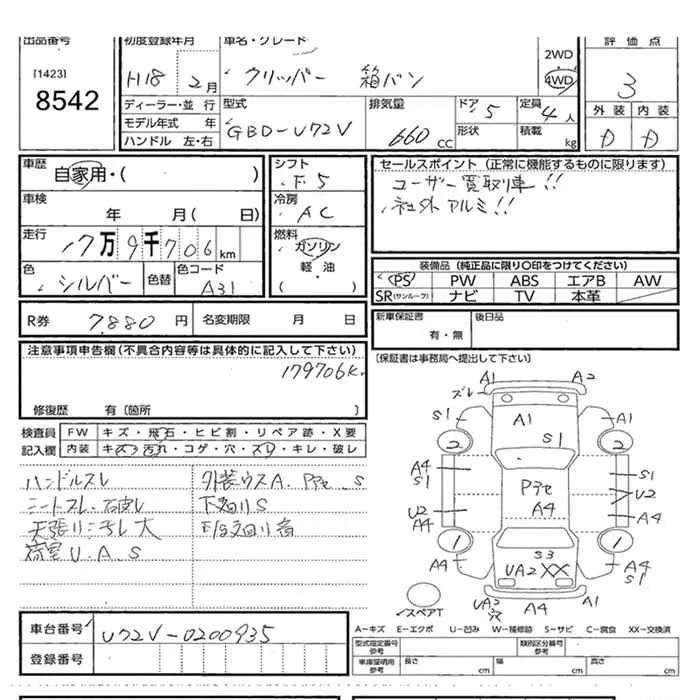 出品番号
[1423]
8542
初度登録年月
H18 年 2月
車名・グレード
クリッパー 箱バン
2WD
4WD
評価点
3
外装 内装
D D
ディーラー・並行
モデル年式 年
ハンドル 左・右
型式
GBD-U72V
排気量
660 CC
ドア 5
形状
定員 4人
積載 kg
車歴
自家用・( )
車検
年 月( 日)
走行
17万9千706km
色
シルバー
色替
色コード
A31
シフト
F5
冷房
AC
燃料
ガソリン
軽油
( ・ )
セールスポイント (正常に機能するものに限ります)
ユーザー買取車!!
社外アルミ!!
装備品 (純正品に限り○印をつけてください)
PS PW ABS エアB AW
SR(サンルーフ) ナビ TV 本革
R券 7,880円 名変期限 月 日
新車保証書
有・無
後日品
[保証書は事務局へ提出して下さい]
注意事項申告欄(不具合内容等は具体的に記入して下さい)
179706K
修復歴 有〔箇所 〕
検査員 FW キズ・飛石・ヒビ割・リペア跡・X要
記入欄 内装 キズ・汚れ・コゲ・穴・スレ・キレ・破レ
ハンドルスレ 外装ウスA. S
シートスレ. 下廻りS
天張り汚レ大
荷室U.A.S
A1 A2
ズレ
S1 A1 A1
S1
2 2
A4
S1
S1
U2
U2
A4
A4
A4
1 1
S3
A4 UA2XX A4
S1
スペアT
UA2
A4 A1
A-キズ E-エクボ U-凹み W-補修跡 S-サビ C-腐食 XX-交換済
車台番号 U72V-0200935
登録番号
型式指定番号
参考
類別区分番号
参考
車庫証明用
参考
長さ cm 幅 cm 高さ cm